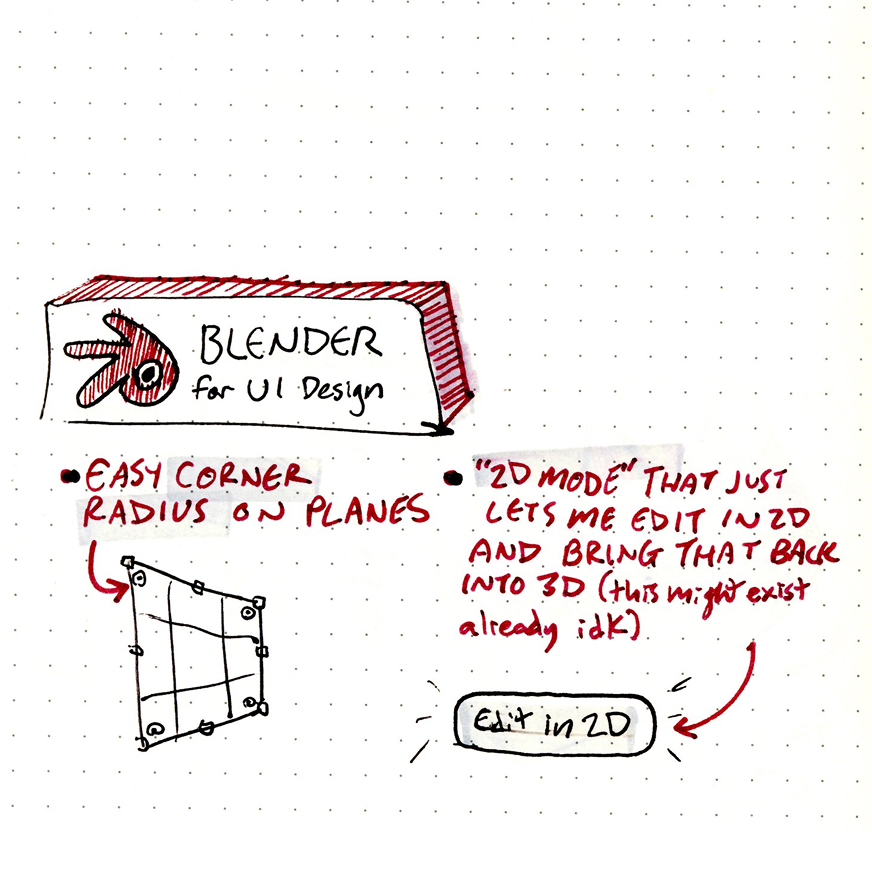 BLENDER
for UI Design
EASY CORNER
RADIUS ON PLANES
"2D MODE" THAT JUST
LETS ME EDIT IN 2D
AND BRING THAT BACK
INTO 3D (this might exist
already idk)
Edit in 2D